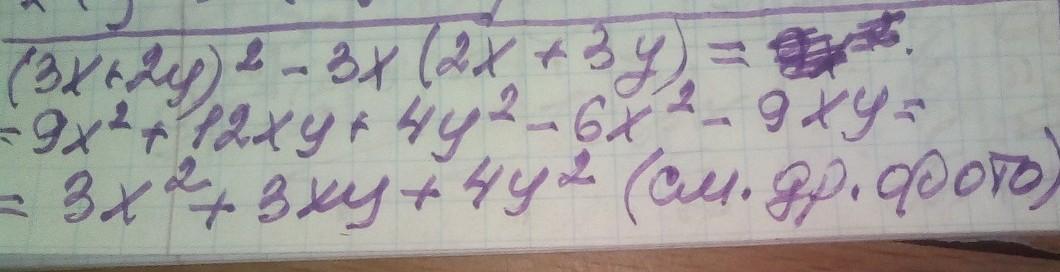 (3x+2y)² - 3x(2x+3y) =
= 9x² + 12xy + 4y² - 6x² - 9xy =
= 3x² + 3xy + 4y² (см. др. фото)